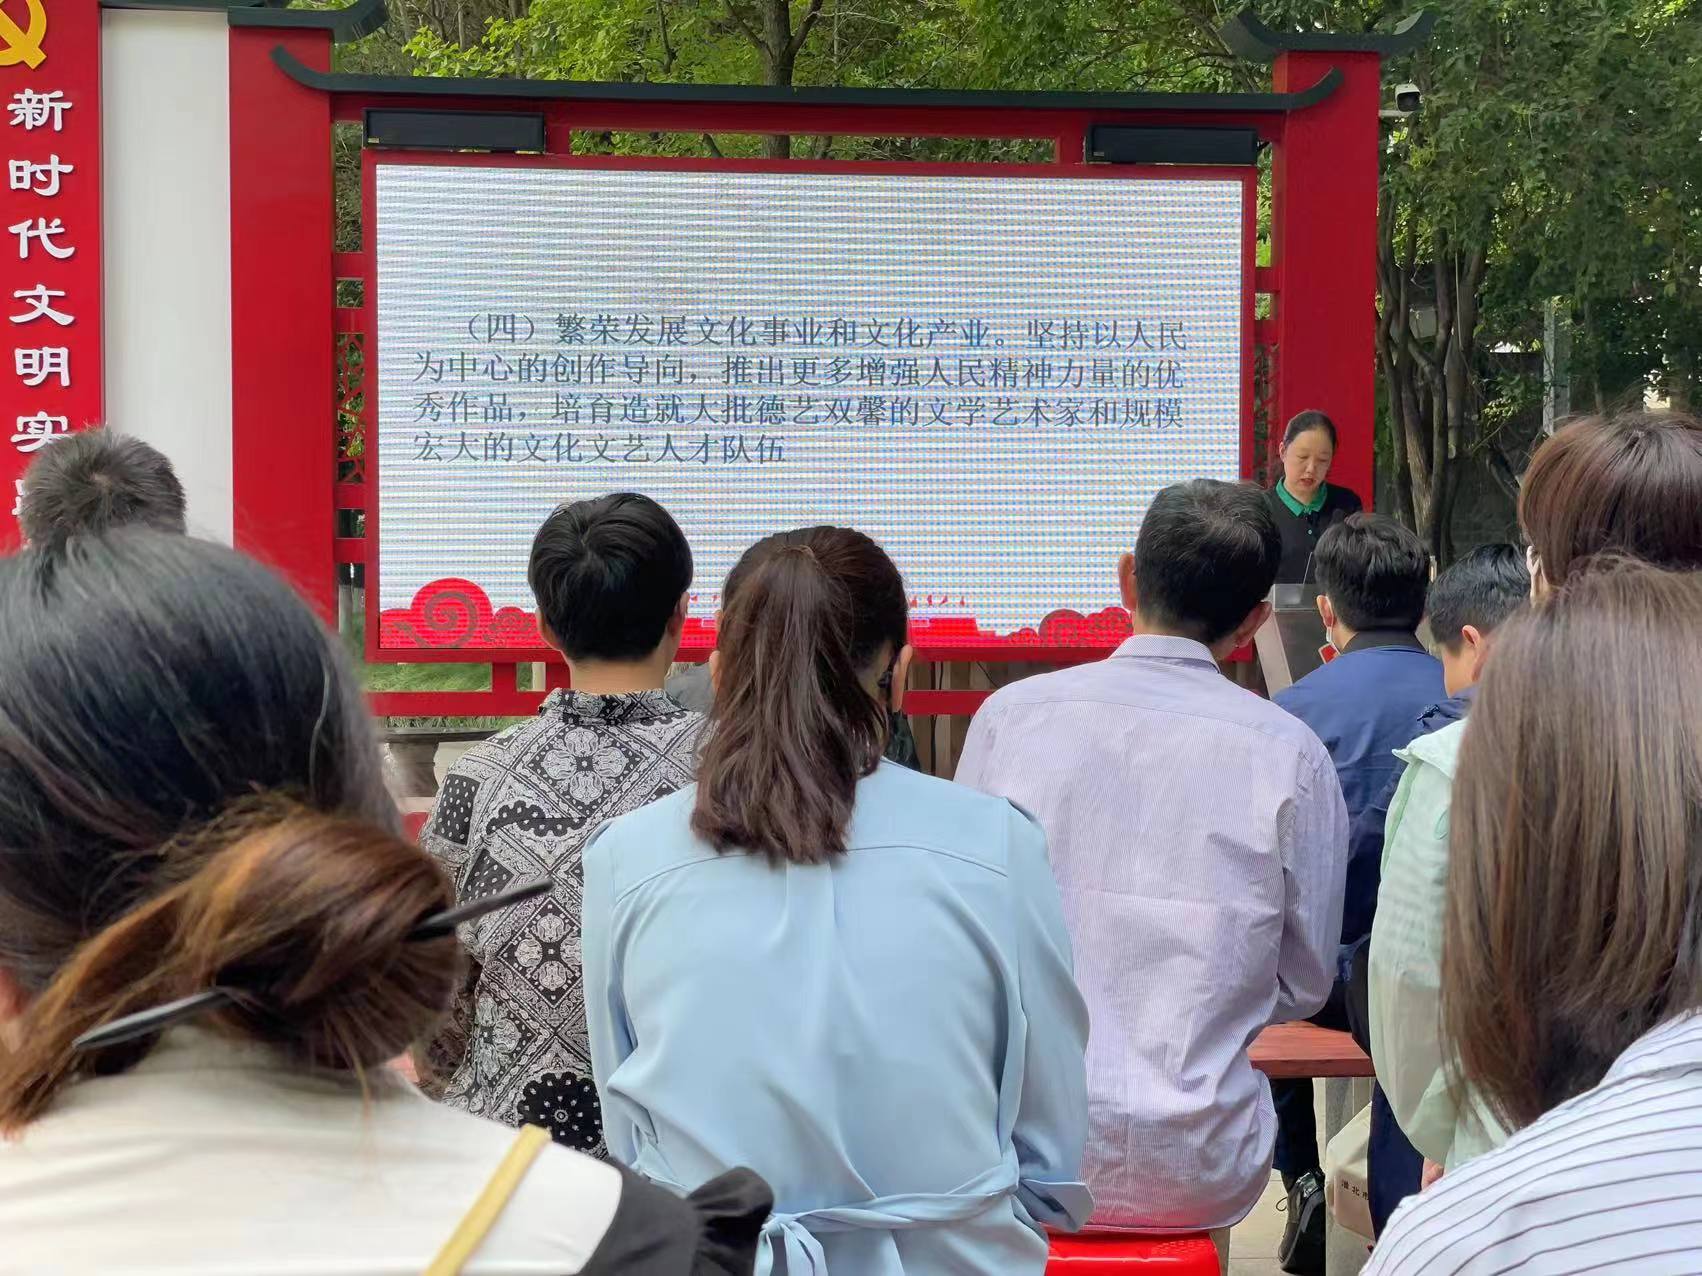 新时代文明实
（四）繁荣发展文化事业和文化产业。坚持以人民
为中心的创作导向，推出更多增强人民精神力量的优
秀作品，培育造就大批德艺双馨的文学艺术家和规模
宏大的文化文艺人才队伍